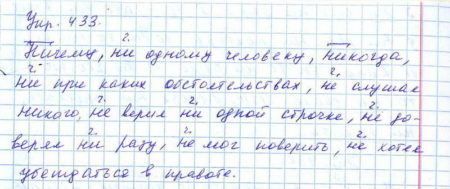 Упр. 433.
Ничему, ни одному человеку, никогда,
ни при каких обстоятельствах, не слушая
никого, не верил ни одной строчке, не до-
верял ни разу, не мог поверить, не хотел
убеждаться в правоте.